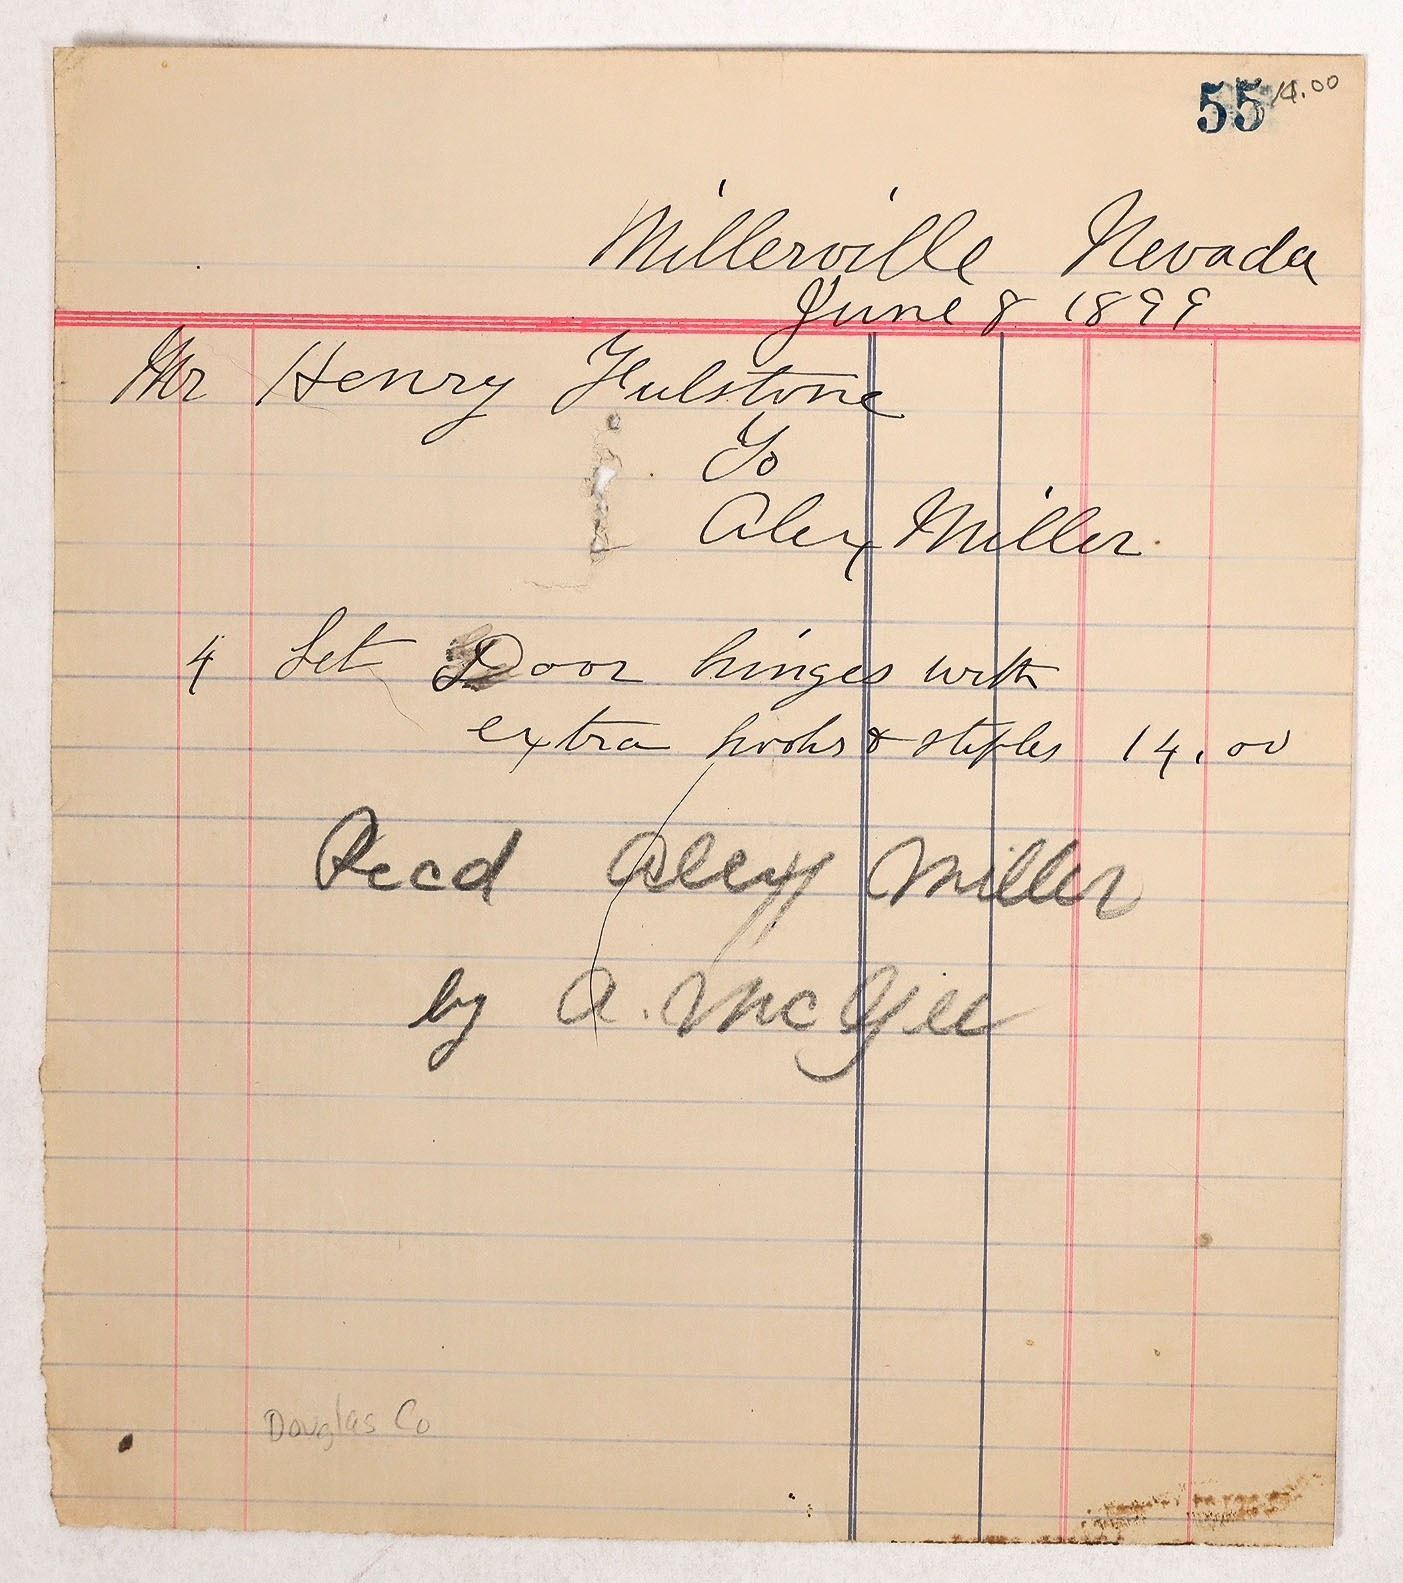 55 14.00
Millerville Nevada
June 8 1899
Mr Henry Fulstone
To
Alex Miller
4 Set Door hinges with
extra hooks & staples 14.00
Recd Alexx Miller
by A. McGill
Douglas Co